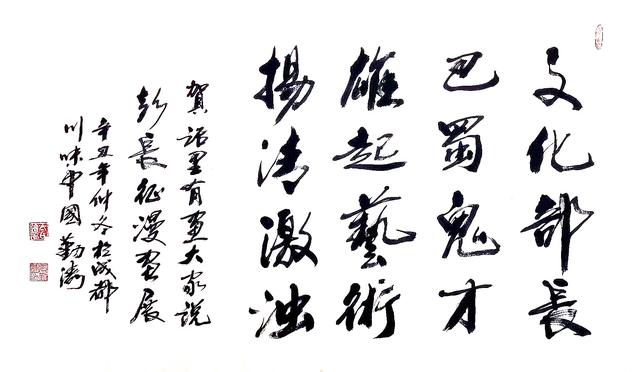 文化部長
巴蜀鬼才
雄起藝術
揚清激浊
賀話里有画大家說
彭長征漫画展
辛丑年仲冬於成都
川味中國勤濤